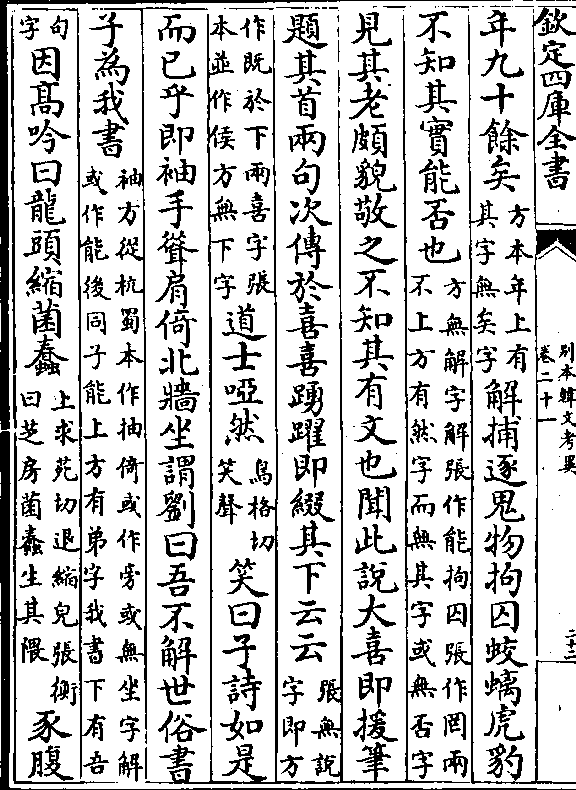 欽定四庫全書
别本韓文考異
卷二十一
二十二
年九十餘矣方本年上有其字無矣字解捕逐鬼物拘囚蛟螭虎豹
不知其實能否也方無解字解張作能拘囚張作罔兩不上方有然字而無其字或無否字
見其老頗貌敬之不知其有文也聞此説大喜即援筆
題其首兩句次傳於喜喜踴躍即綴其下云云張無説字即方
作既於下兩喜字張本並作倿方無下字道士啞然烏格切笑聲笑曰子詩如是
而已乎即袖手聳肩倚北牆坐謂劉曰吾不解世俗書
子為我書袖方從杭蜀本作抽倚或作旁或無坐字解或作能後同子能上方有弟字我書下有吾
句字因髙吟曰龍頭縮菌蠢上求苑切退縮皃張衡曰芝房菌蠢生其隈豕腹